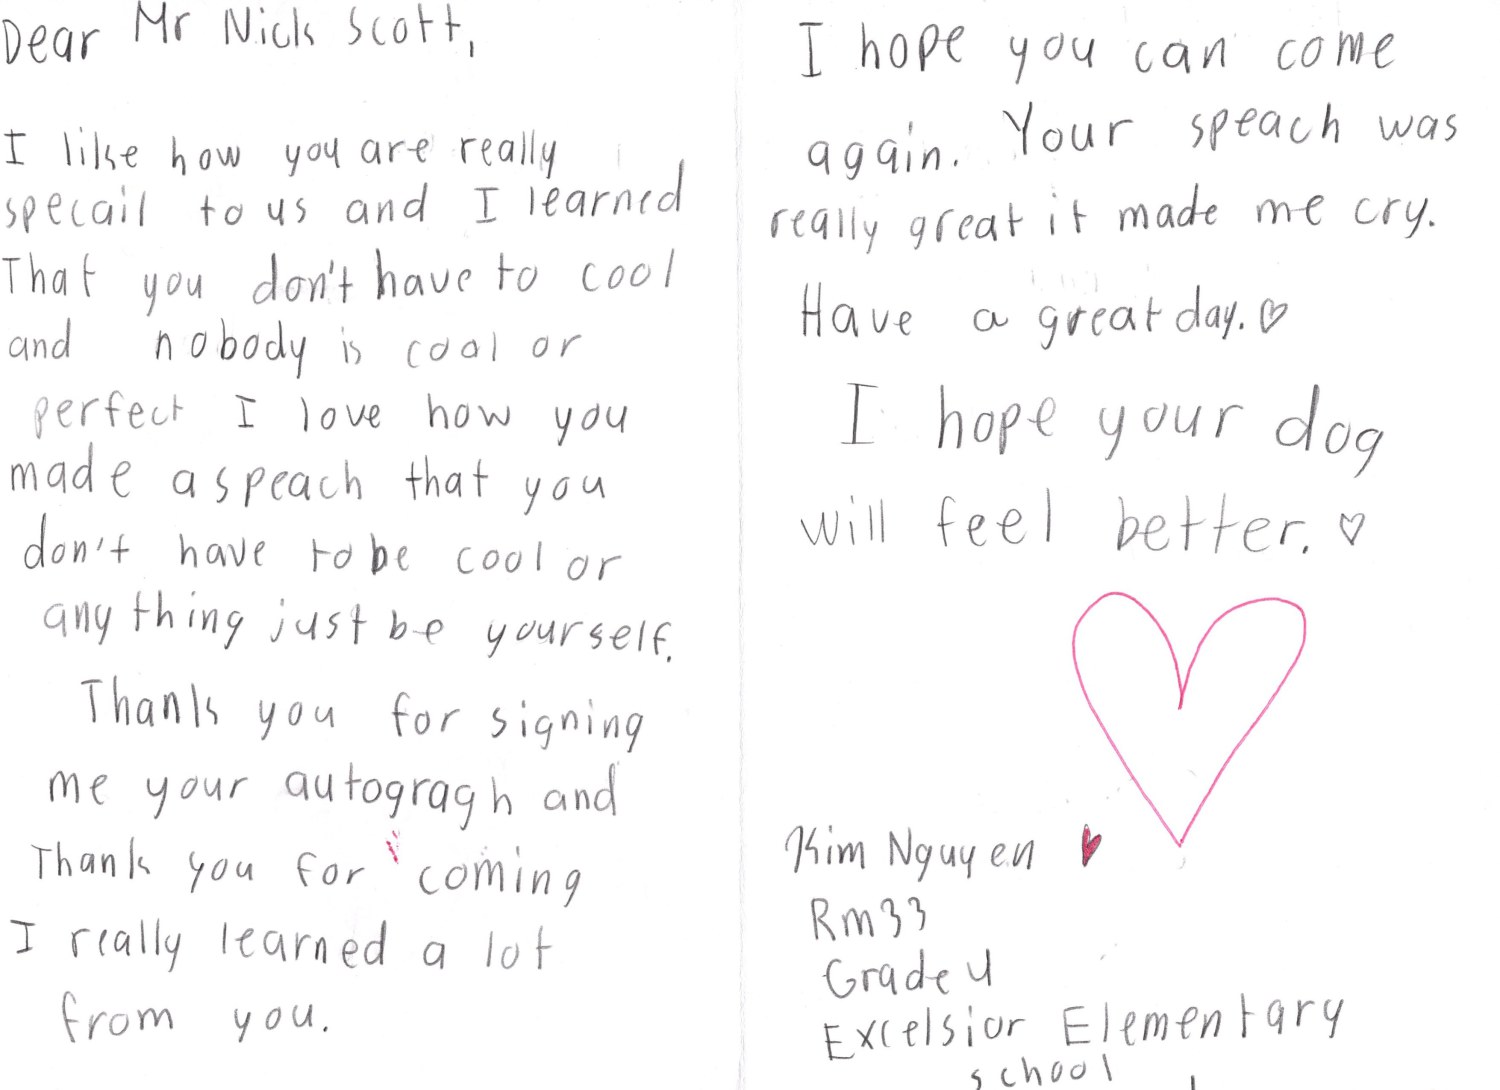 Dear Mr Nick Scott,
I like how you are really
specail to us and I learned
That you don't have to cool
and nobody is cool or
perfect I love how you
made a speach that you
don't have to be cool or
any thing just be yourself.
Thank you for signing
me your autogragh and
Thank you for coming
I really learned a lot
from you.
I hope you can come
again. Your speach was
really great it made me cry.
Have a great day.♡
I hope your dog
will feel better. ♡
Kim Nguyen ♥
Rm33
Grade 4
Excelsior Elementary
school